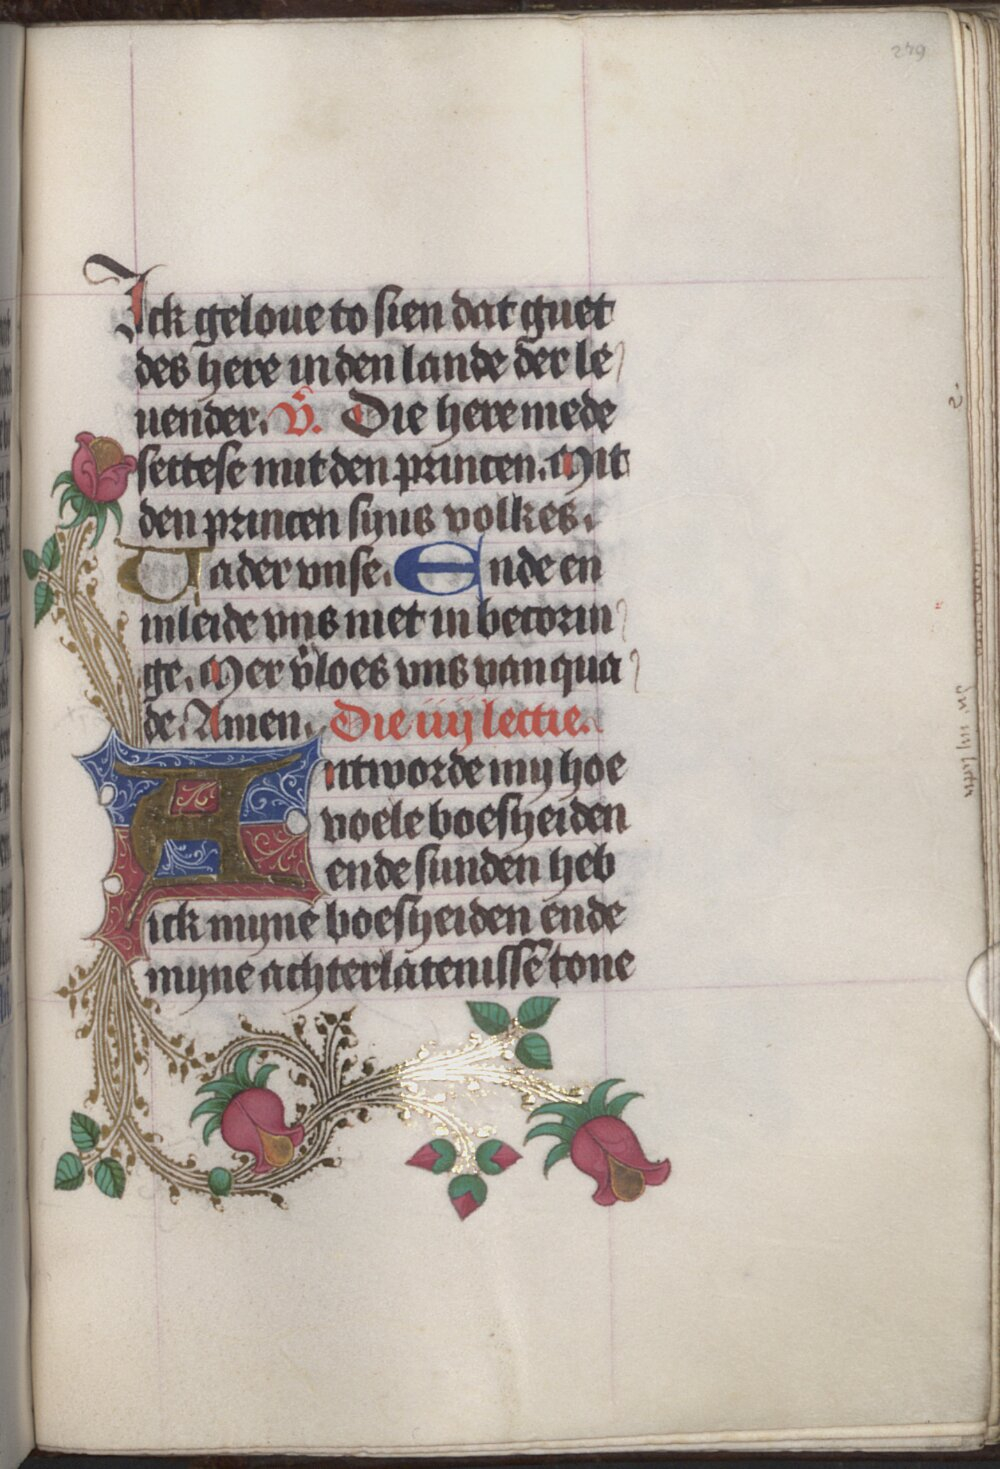 279
Ick geloue to sien dat guet
des here in den lande der le
uender. V̄. Die here mede
settese mit den princen. Mit
den princen syns volkes.
Vader vnse. Ende en
inleide vns niet in becorin
ge. Mer v̄loes vns van qua
de. Amen. Die iiij lectie.
Antworde my hoe
voele boesheiden
ende sunden heb
ick myne boesheiden ende
myne achterlatenissē tone